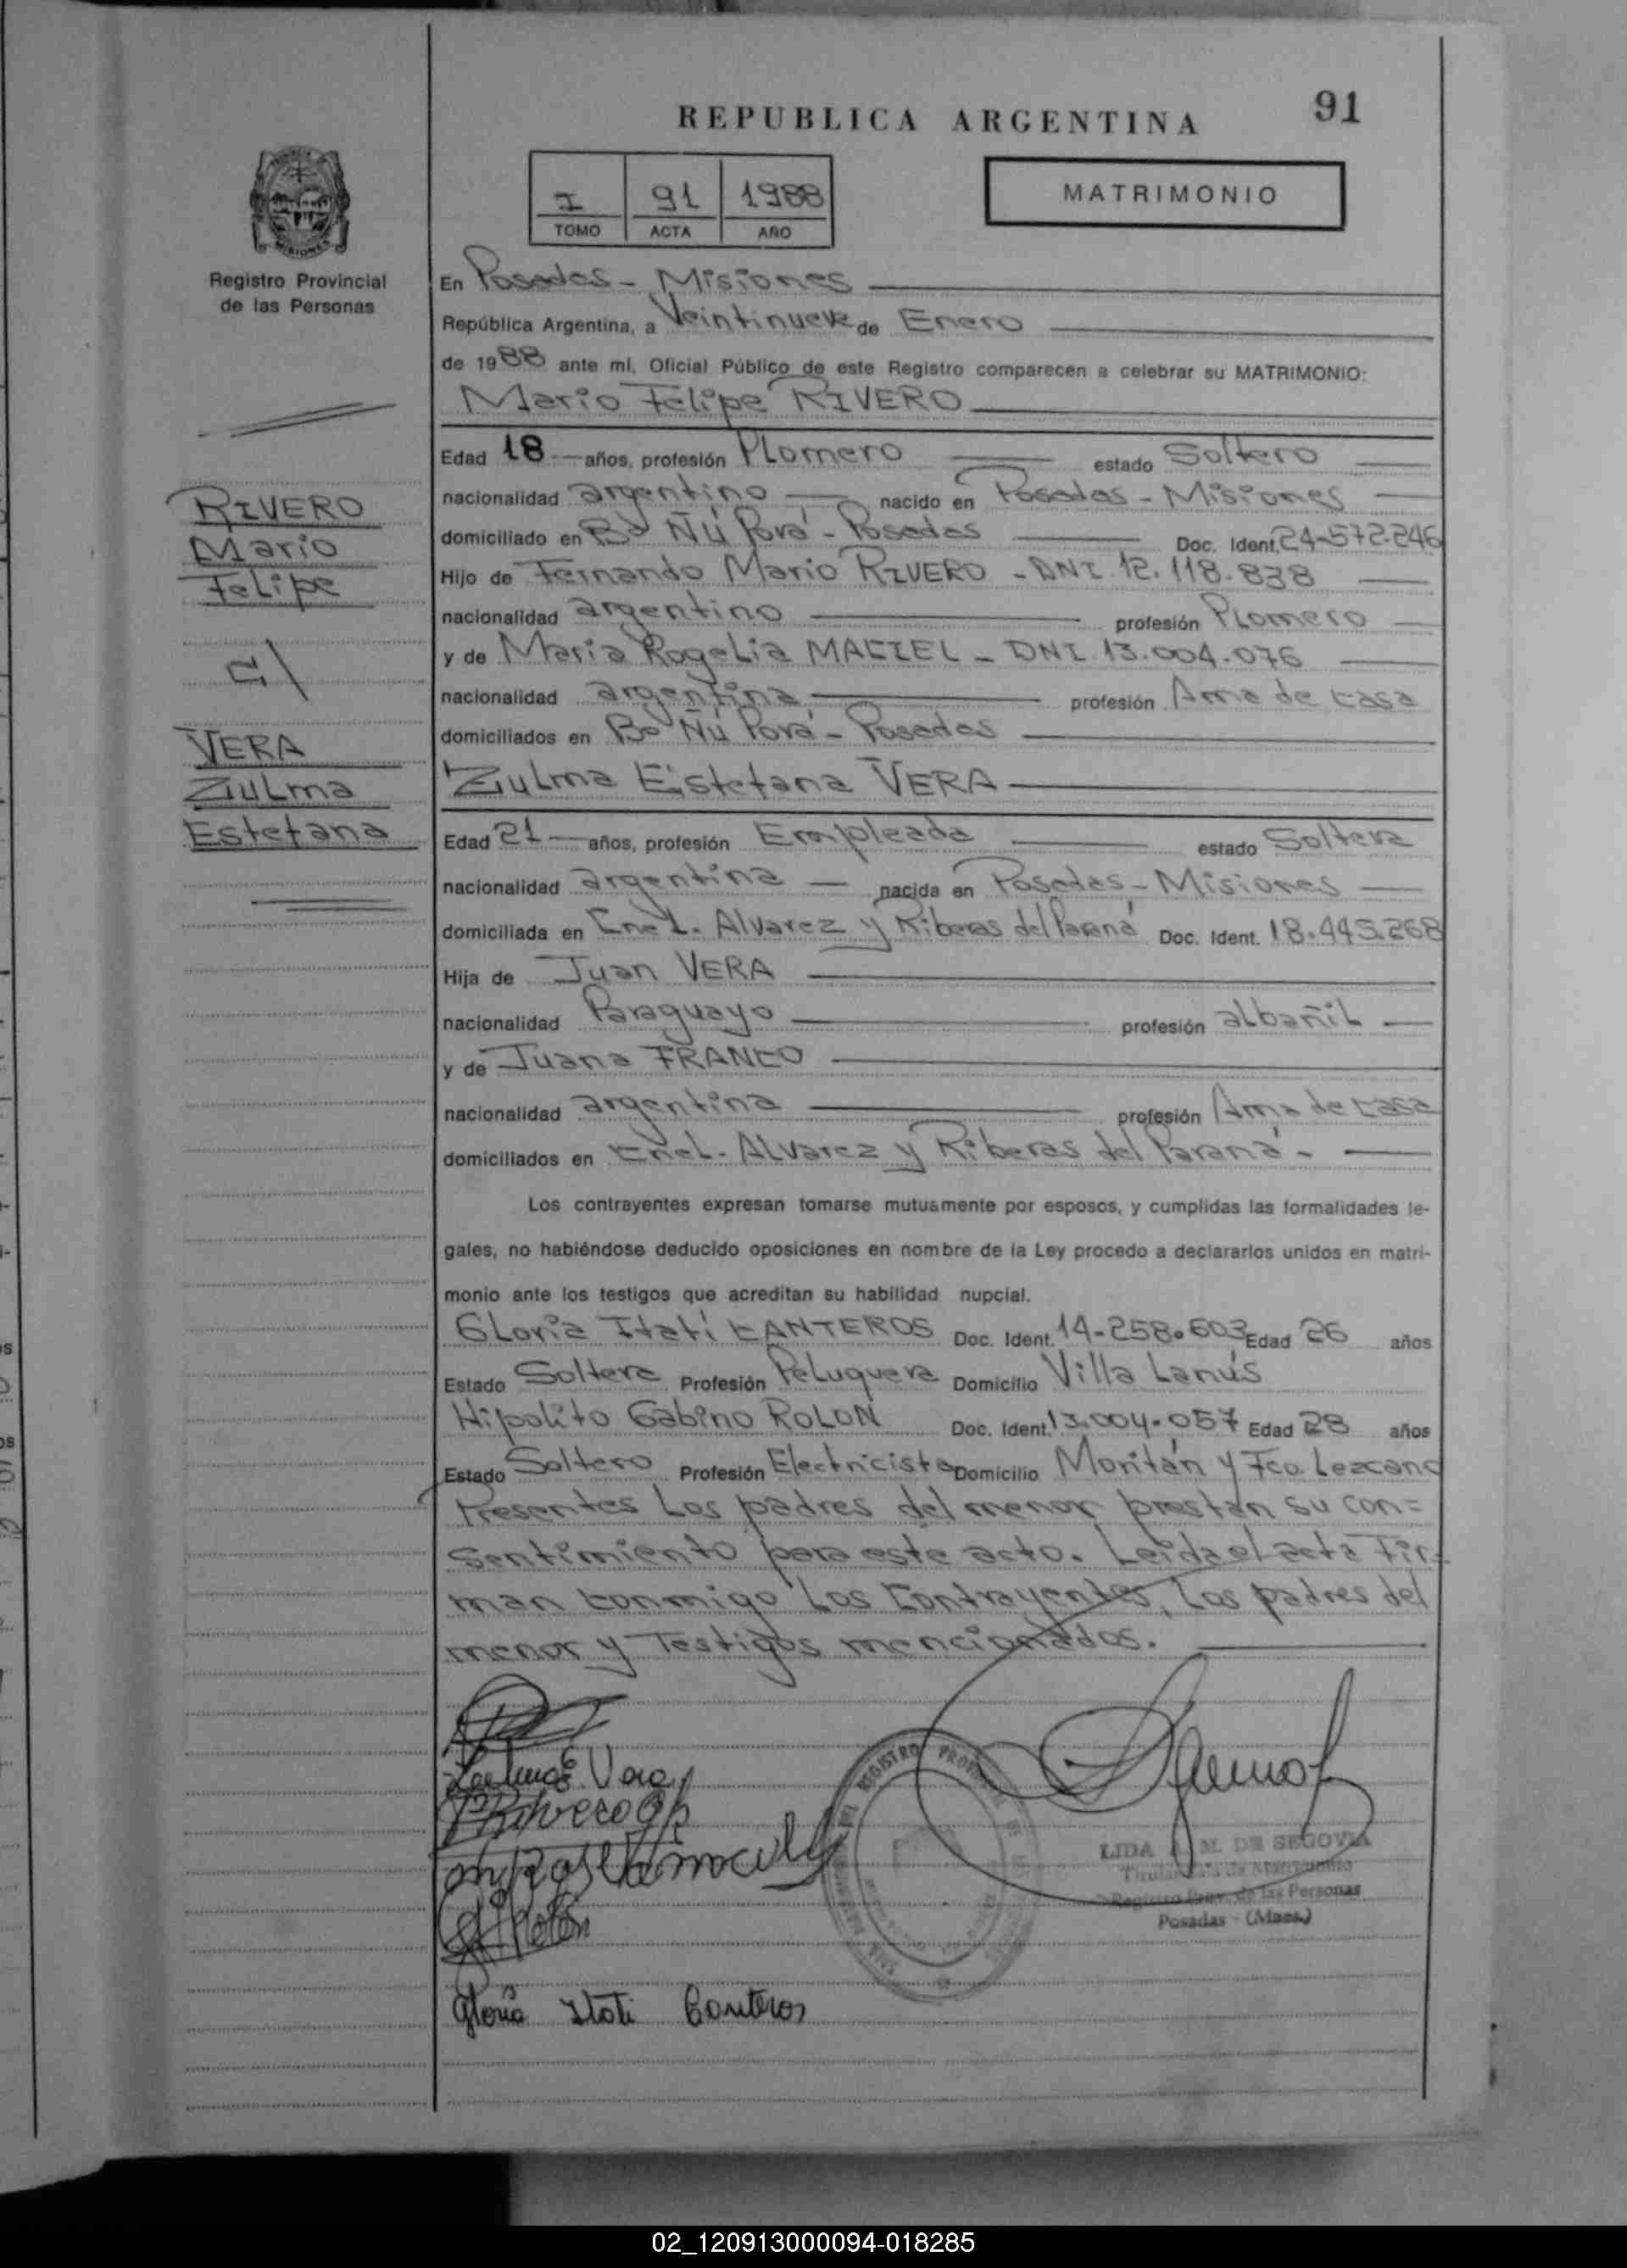 91
REPUBLICA ARGENTINA
I 91 1988
TOMO ACTA AÑO
MATRIMONIO
MISIONES
Registro Provincial
de las Personas
RIVERO
Mario
Felipe
c/
VERA
Zulma
Estefana
En Posadas - Misiones
República Argentina, a Veintinueve de Enero
de 1988 ante mí, Oficial Público de este Registro comparecen a celebrar su MATRIMONIO:
Mario Felipe RIVERO
Edad 18 años, profesión Plomero estado Soltero
nacionalidad argentino nacido en Posadas - Misiones
domiciliado en Bº Ñú Porá - Posadas Doc. Ident. 24-572.246
Hijo de Fernando Mario RIVERO - DNI 12.118.838
nacionalidad argentino profesión Plomero
y de Maria Rogelia MACIEL - DNI 13.004.076
nacionalidad argentina profesión Ama de casa
domiciliados en Bº Ñú Porá - Posadas
Zulma Estefana VERA
Edad 21 años, profesión Empleada estado Soltera
nacionalidad argentina nacida en Posadas - Misiones
domiciliada en Cnel. Alvarez y Riberas del Paraná Doc. Ident. 18.445.268
Hija de Juan VERA
nacionalidad Paraguayo profesión albañil
y de Juana FRANCO
nacionalidad argentina profesión Ama de casa
domiciliados en Cnel. Alvarez y Riberas del Paraná -
Los contrayentes expresan tomarse mutuamente por esposos, y cumplidas las formalidades le-
gales, no habiéndose deducido oposiciones en nombre de la Ley procedo a declararlos unidos en matri-
monio ante los testigos que acreditan su habilidad nupcial.
Gloria Itatí CANTEROS Doc. Ident. 14-258.603 Edad 26 años
Estado Soltera Profesión Peluquera Domicilio Villa Lanús
Hipolito Gabino ROLON Doc. Ident. 13.004.057 Edad 28 años
Estado Soltero Profesión Electricista Domicilio Moritán y Fco. Lezcano
Presentes los padres del menor prestan su con=
sentimiento para este acto. Leida el acta fir-
man conmigo los contrayentes, los padres del
menor y Testigos mencionados.
Zulma E Vera
REGISTRO
LIDA M. DE SEGOVIA
Registro Prov. de las Personas
Posadas - (Mnes.)
Rolón
Gloria Itati Canteros
02_120913000094-018285